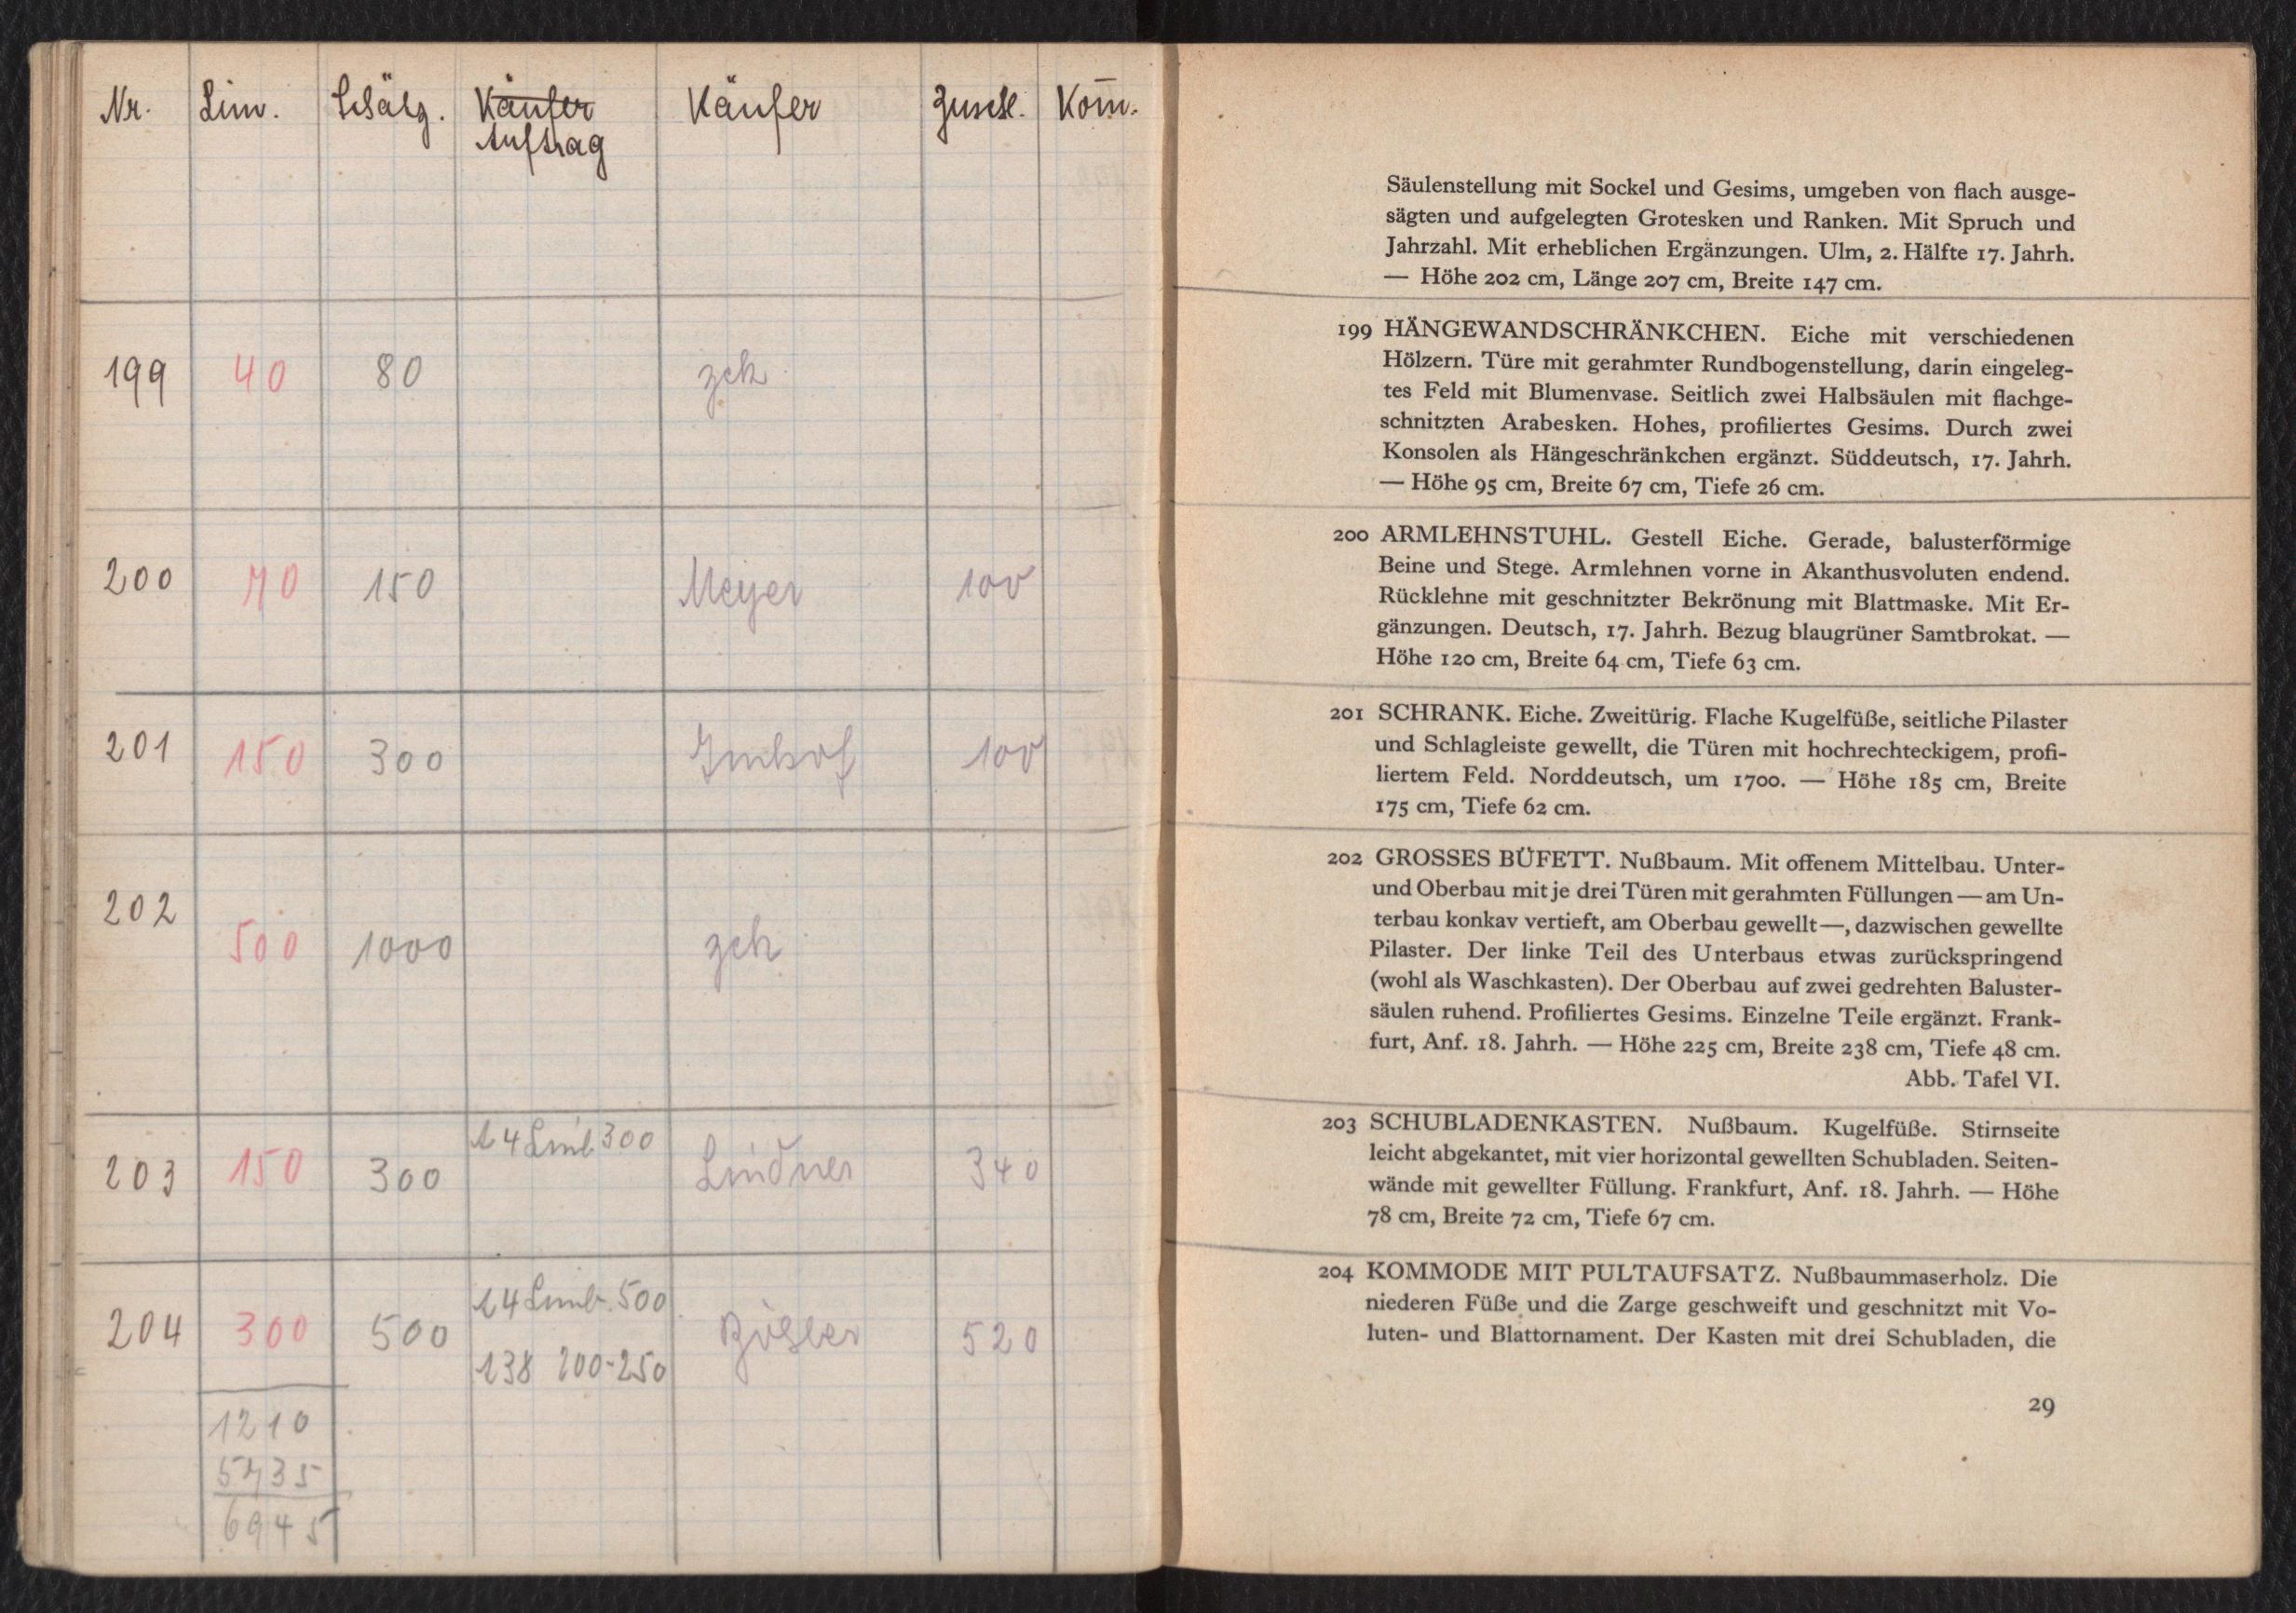 Nr. Lim. Schätzg. Käufer Käufer Zuschl. Kom̄.
Auftrag
199 40 80 zck
200 70 150 Meyer 100
201 150 300 Imhof 100
202
500 1000 zck
14 Limb 300
203 150 300 Lindner 340
14 Limb. 500
204 300 500 520
138 200-250
1210
5735
6945
Säulenstellung mit Sockel und Gesims, umgeben von flach ausge-
sägten und aufgelegten Grotesken und Ranken. Mit Spruch und
Jahrzahl. Mit erheblichen Ergänzungen. Ulm, 2. Hälfte 17. Jahrh.
— Höhe 202 cm, Länge 207 cm, Breite 147 cm.
199 HÄNGEWANDSCHRÄNKCHEN. Eiche mit verschiedenen
Hölzern. Türe mit gerahmter Rundbogenstellung, darin eingeleg-
tes Feld mit Blumenvase. Seitlich zwei Halbsäulen mit flachge-
schnitzten Arabesken. Hohes, profiliertes Gesims. Durch zwei
Konsolen als Hängeschränkchen ergänzt. Süddeutsch, 17. Jahrh.
— Höhe 95 cm, Breite 67 cm, Tiefe 26 cm.
200 ARMLEHNSTUHL. Gestell Eiche. Gerade, balusterförmige
Beine und Stege. Armlehnen vorne in Akanthusvoluten endend.
Rücklehne mit geschnitzter Bekrönung mit Blattmaske. Mit Er-
gänzungen. Deutsch, 17. Jahrh. Bezug blaugrüner Samtbrokat. —
Höhe 120 cm, Breite 64 cm, Tiefe 63 cm.
201 SCHRANK. Eiche. Zweitürig. Flache Kugelfüße, seitliche Pilaster
und Schlagleiste gewellt, die Türen mit hochrechteckigem, profi-
liertem Feld. Norddeutsch, um 1700. — Höhe 185 cm, Breite
175 cm, Tiefe 62 cm.
202 GROSSES BÜFETT. Nußbaum. Mit offenem Mittelbau. Unter-
und Oberbau mit je drei Türen mit gerahmten Füllungen — am Un-
terbau konkav vertieft, am Oberbau gewellt —, dazwischen gewellte
Pilaster. Der linke Teil des Unterbaus etwas zurückspringend
(wohl als Waschkasten). Der Oberbau auf zwei gedrehten Baluster-
säulen ruhend. Profiliertes Gesims. Einzelne Teile ergänzt. Frank-
furt, Anf. 18. Jahrh. — Höhe 225 cm, Breite 238 cm, Tiefe 48 cm.
Abb. Tafel VI.
203 SCHUBLADENKASTEN. Nußbaum. Kugelfüße. Stirnseite
leicht abgekantet, mit vier horizontal gewellten Schubladen. Seiten-
wände mit gewellter Füllung. Frankfurt, Anf. 18. Jahrh. — Höhe
78 cm, Breite 72 cm, Tiefe 67 cm.
204 KOMMODE MIT PULTAUFSATZ. Nußbaummaserholz. Die
niederen Füße und die Zarge geschweift und geschnitzt mit Vo-
luten- und Blattornament. Der Kasten mit drei Schubladen, die
29